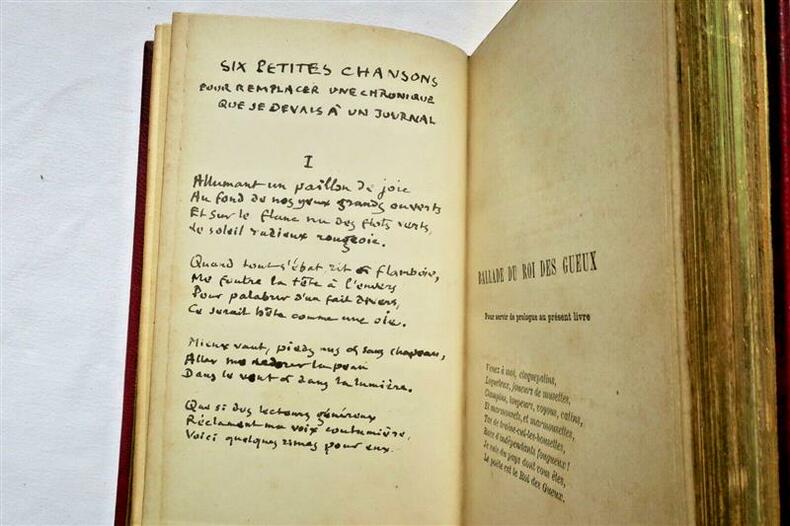 SIX PETITES CHANSONS
POUR REMPLACER UNE CHRONIQUE
QUE JE DEVAIS À UN JOURNAL
I
Allumant un paillon de joie
Au fond de nos yeux grands ouverts
Et sur le flanc nu des flots verts,
Le soleil radieux rougeoie.
Quand tout s'ébat, rit et flamboie,
Me foutre la tête à l'envers
Pour palabrer d'un fait divers,
Ce serait bête comme une oie.
Mieux vaut, pieds nus et sans chapeau,
Aller me redorer la peau
Dans le vent et dans la lumière.
Que si des lecteurs généreux
Réclament ma voix coutumière,
Voici quelques rimes pour eux.
BALLADE DU ROI DES GUEUX
Pour servir de prologue au présent livre
Venez à moi, claquepatins,
Loqueteux, joueurs de musettes,
Clampins, loupeurs, voyous, catins,
Et marmousets, et marmousettes,
Tas de traîne-cul-les-housettes,
Race d'indépendants fougueux !
Je suis du pays dont vous êtes,
Le poète est le Roi des Gueux.